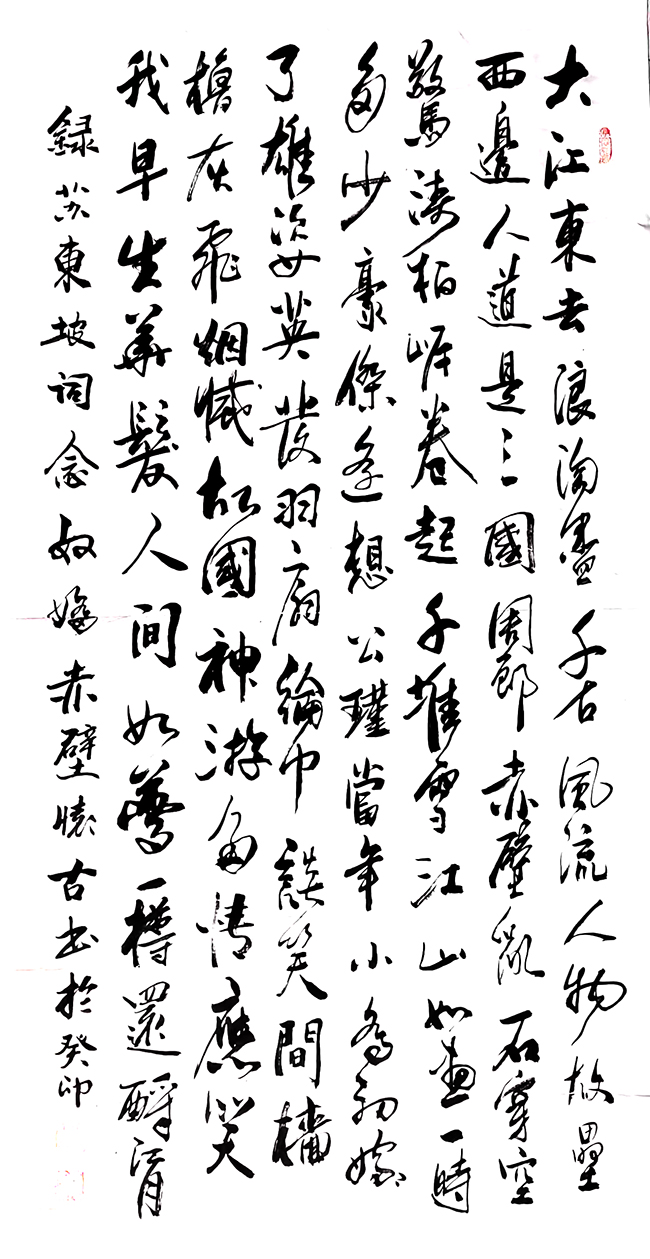 大江東去浪淘盡千古風流人物故壘
西邊人道是三國周郎赤壁亂石穿空
驚濤拍岸卷起千堆雪江山如畫一時
多少豪傑遙想公瑾當年小喬初嫁
了雄姿英發羽扇綸巾談笑間檣
櫓灰飛烟滅故國神游多情應笑
我早生華髮人间如夢一樽還酹江月
録苏東坡詞念奴嬌赤壁懷古书於癸卯